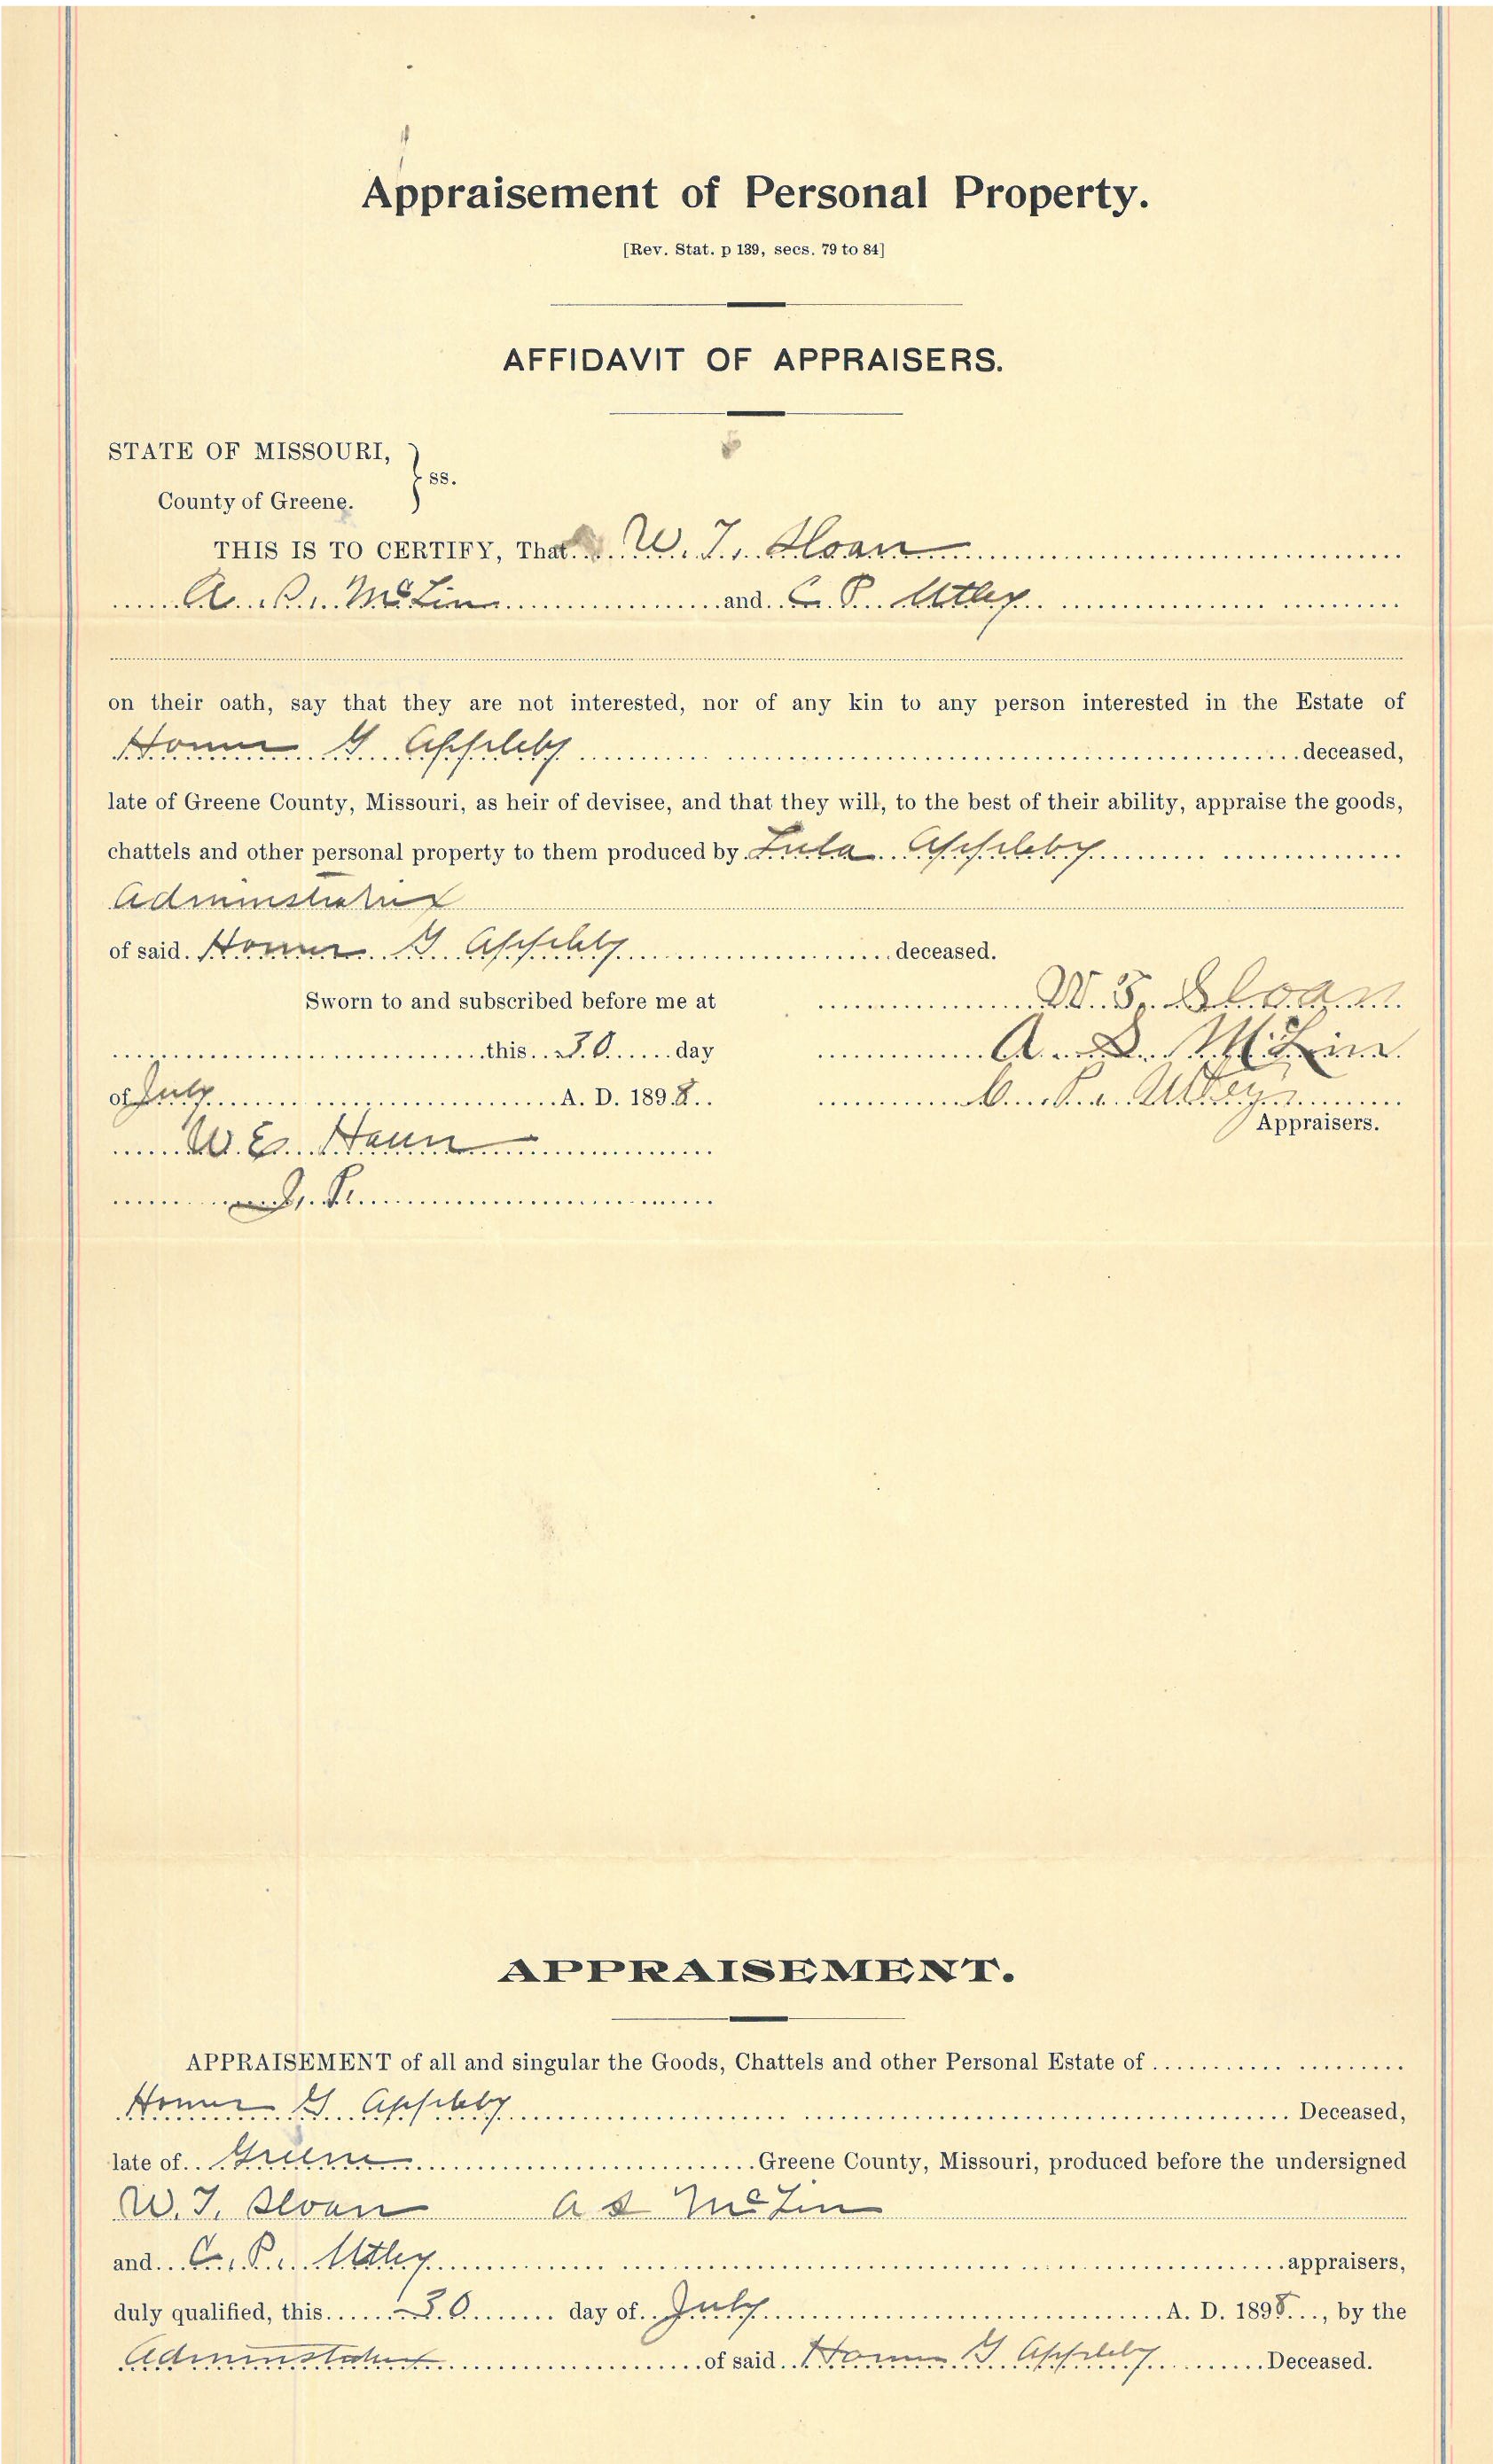 Appraisement of Personal Property.
[Rev. Stat. p 139, secs. 79 to 84]
AFFIDAVIT OF APPRAISERS.
STATE OF MISSOURI,
ss.
County of Greene.
THIS IS TO CERTIFY, That W. T. Sloan
A. S. McLin and C. P. Utley
on their oath, say that they are not interested, nor of any kin to any person interested in the Estate of
Homer G Appleby deceased,
late of Greene County, Missouri, as heir of devisee, and that they will, to the best of their ability, appraise the goods,
chattels and other personal property to them produced by Lula Appleby
Adminstratrix
of said Homer G Appleby deceased.
Sworn to and subscribed before me at
W. T. Sloan
this 30 day
A. S. McLin
of July A. D. 1898
C. P. Utley
Appraisers.
W. E. Haun
J. P.
APPRAISEMENT.
APPRAISEMENT of all and singular the Goods, Chattels and other Personal Estate of
Homer G Appleby Deceased,
late of Greene Greene County, Missouri, produced before the undersigned
W. T. Sloan A S McLin
and C. P. Utley appraisers,
duly qualified, this 30 day of July A. D. 1898, by the
Adminstratrix of said Homer G Appleby Deceased.